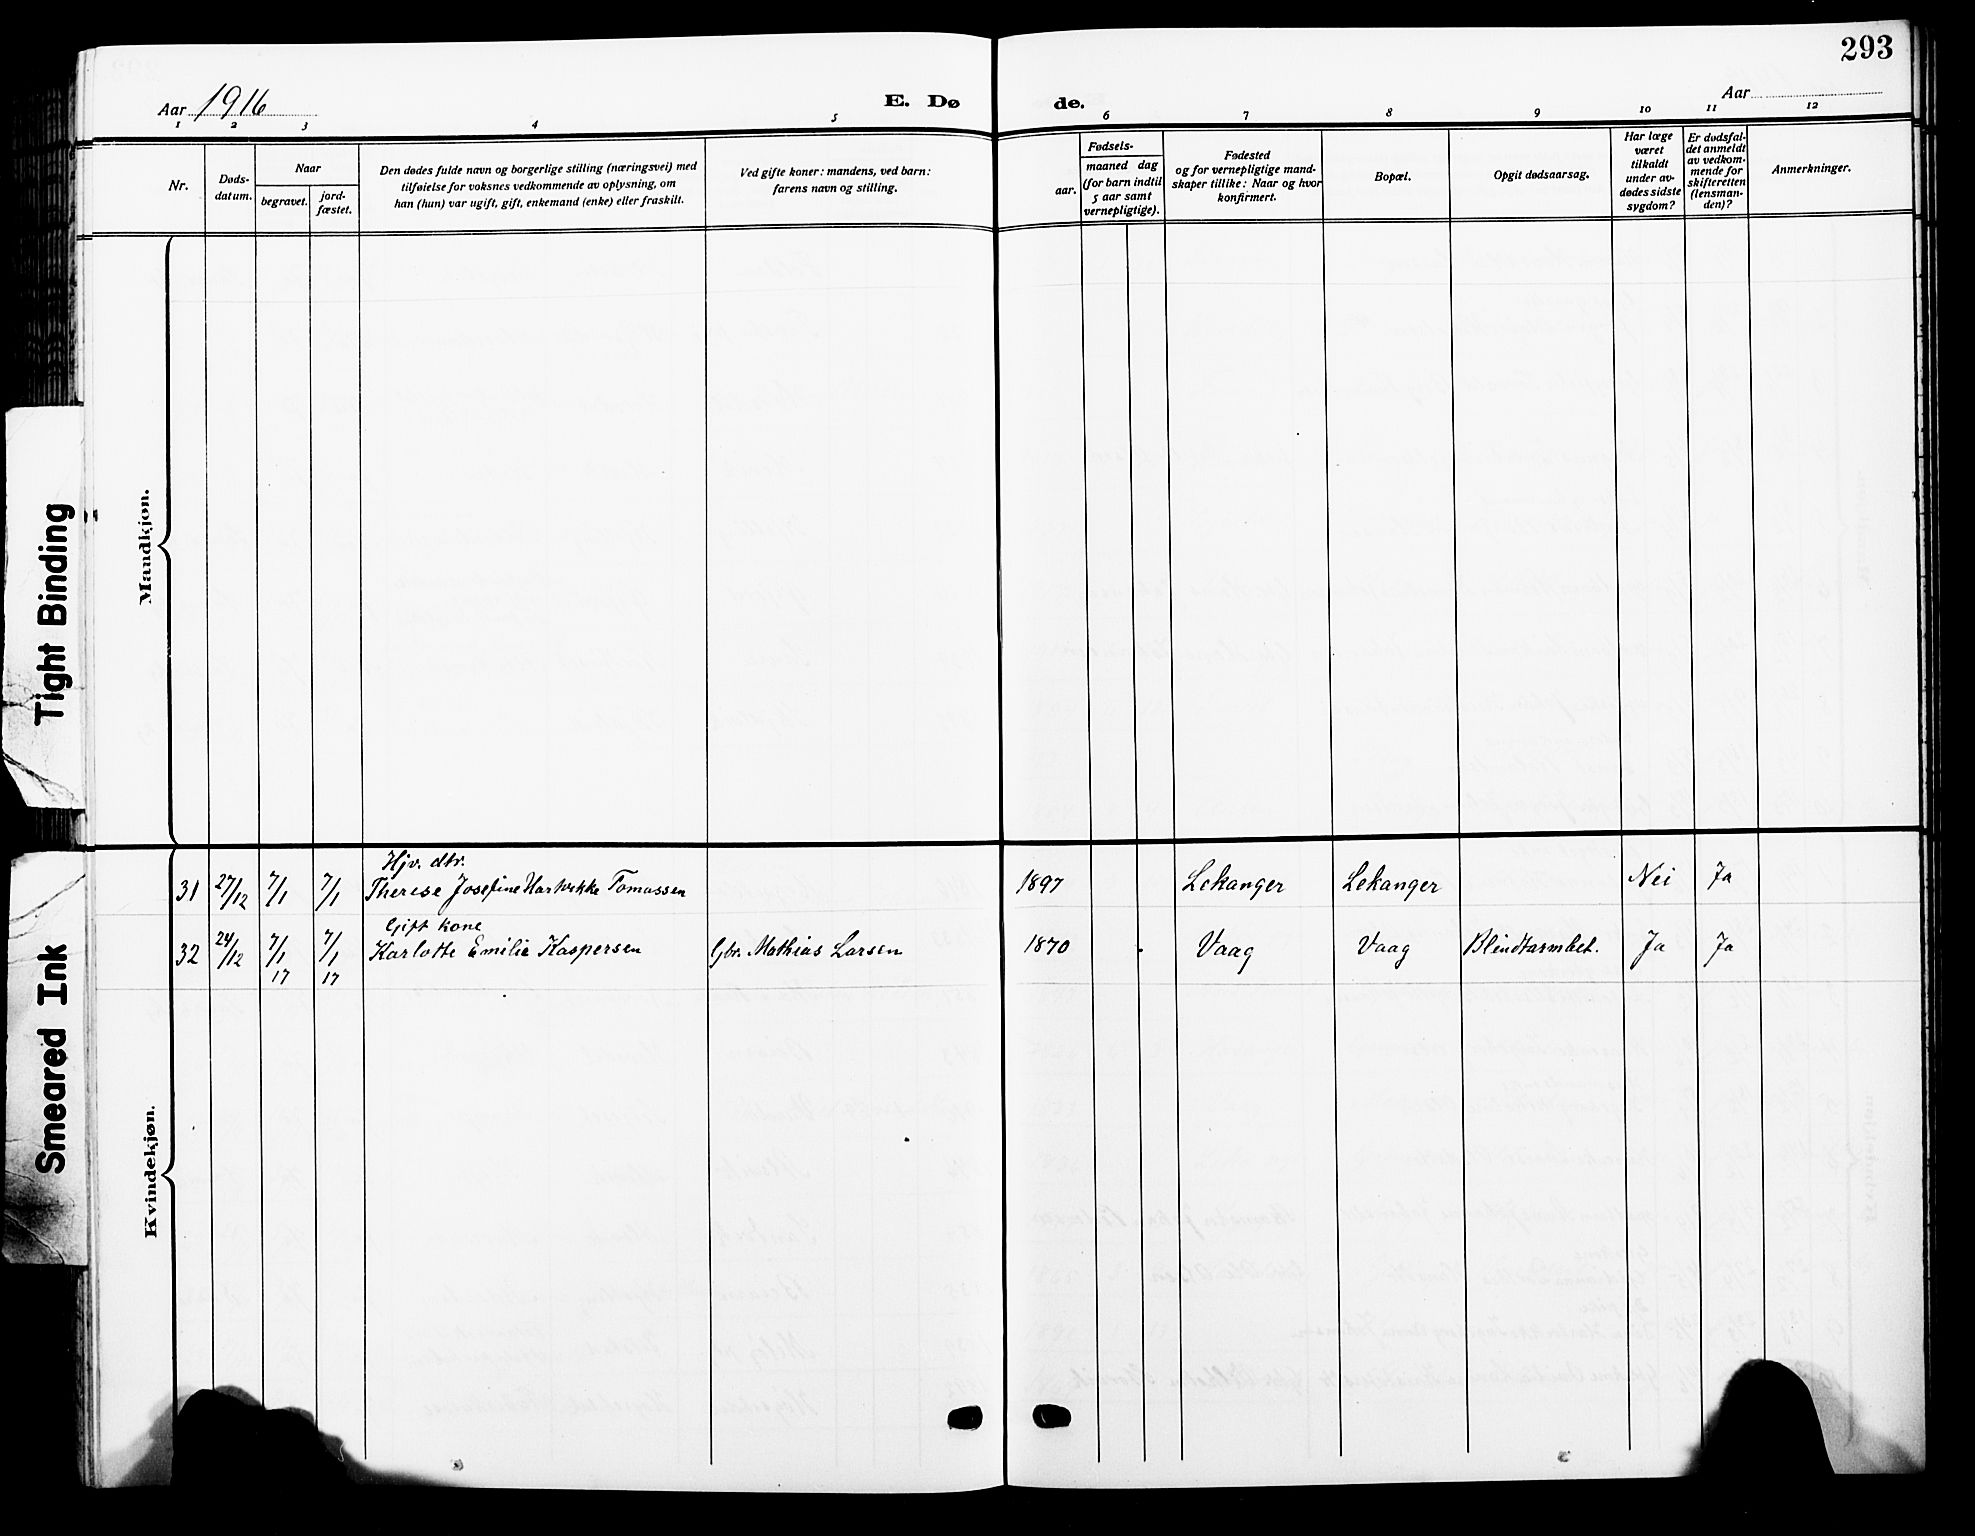 293
Aar 1916
E. Dø
de.
Aar
1 2 3 4 5 6 7 8 9 10 11 12
Nr.
Døds-
datum.
Naar
begravet.
jord-
fæstet.
Den dødes fulde navn og borgerlige stilling (næringsvei) med
tilføielse for voksnes vedkommende av oplysning, om
han (hun) var ugift, gift, enkemand (enke) eller fraskilt.
Ved gifte koner: mandens, ved barn:
farens navn og stilling.
Fødsels-
aar.
maaned dag
(for barn indtil
5 aar samt
vernepligtige).
Fødested
og for vernepligtige mand-
skaper tillike: Naar og hvor
konfirmert.
Bopæl.
Opgit dødsaarsag.
Har læge
været
tilkaldt
under av-
dødes sidste
sygdom?
Er dødsfal-
det anmeldt
av vedkom-
mende for
skifteretten
(lensman-
den)?
Anmerkninger.
Mandkjøn.
Tight Binding
Hjv. dtr.
31 27/12 7/1 7/1 Therese Josefine Tomassen 1897 Lekanger Lekanger Nei Ja
Gift kone
32 24/12 7/1 7/1 Karlotte Emilie Kaspersen Gbr. Mathias Larsen 1870 Vaag Vaag Blindtarmbet. Ja Ja
17 17
Kvindekjøn.
Smeared Ink